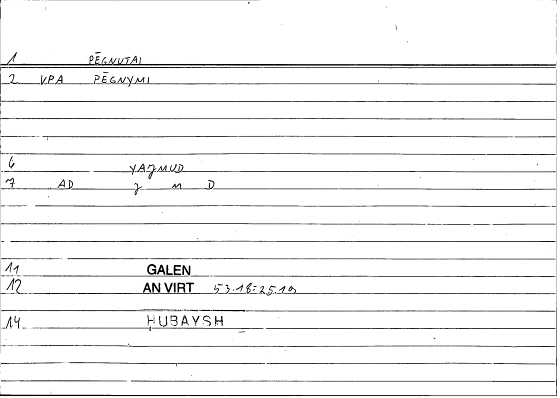 1 PĒGNUTAI
2 VPA PĒGNYMI
6 YAJMUD
7 AD J M D
11 GALEN
12 AN VIRT 53.18:25.19
14 ḤUBAYSH